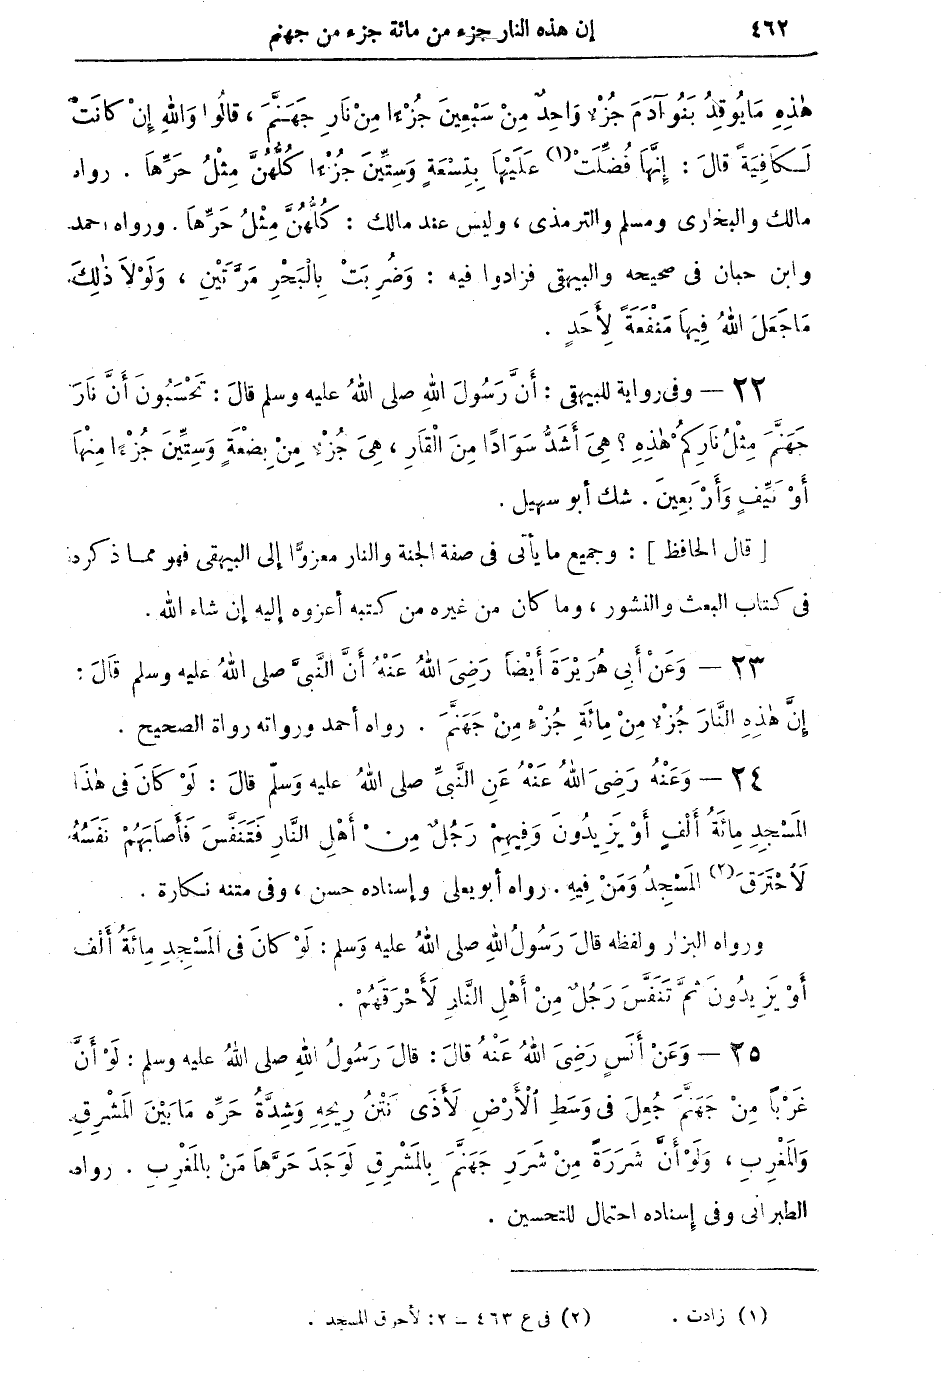 ٤٦٢ إن هذه النار جزء من مائة جزء من جهنم
هٰذِهِ مَا يُوقِدُ بَنُو آدَمَ جُزْءٌ وَاحِدٌ مِنْ سَبْعِينَ جُزْءًا مِنْ نَارِ جَهَنَّمَ ، قالُوا وَاللهِ إِنْ كانَتْ
لَكافِيَةً قالَ : إِنَّهَا فُضِّلَتْ (١) عَلَيْهَا بِتِسْعَةٍ وَسِتِّينَ جُزْءًا كُلُّهُنَّ مِثْلُ حَرِّهَا . رواه
مالك والبخارى ومسلم والترمذى ، وليس عند مالك : كُلُّهُنَّ مِثْلُ حَرِّهَا . ورواه احمد
وابن حبان فى صحيحه والبيهقى فزادوا فيه : وَضُرِبَتْ بِالْبَحْرِ مَرَّتَيْنِ ، وَلَوْلاَ ذٰلِكَ
مَا جَعَلَ اللهُ فِيهَا مَنْفَعَةً لِأَحَدٍ .
٢٢ — وفى رواية للبيهقى : أَنَّ رَسُولَ اللهِ صلى اللهُ عليه وسلم قالَ : تَحْسَبُونَ أَنَّ نَارَ
جَهَنَّمَ مِثْلُ نَارِكُمْ هٰذِهِ ؟ هِىَ أَشَدُّ سَوَادًا مِنَ الْقَارِ ، هِىَ جُزْءٌ مِنْ بِضْعَةٍ وَسِتِّينَ جُزْءًا مِنْهَا
أَوْ نَيِّفٍ وَأَرْبَعِينَ . شك أبو سهيل .
[ قال الحافظ ] : وجميع ما يأتى فى صفة الجنة والنار معزوًّا إلى البيهقى فهو مما ذكره
فى كتاب البعث والنشور ، وما كان من غيره من كتبه أعزوه إليه إن شاء الله .
٢٣ — وَعَنْ أَبِى هُرَيْرَةَ أَيْضاً رَضِىَ اللهُ عَنْهُ أَنَّ النَّبِىَّ صلى اللهُ عليه وسلم قالَ :
إِنَّ هٰذِهِ النَّارَ جُزْءٌ مِنْ مِائَةِ جُزْءٍ مِنْ جَهَنَّمَ . رواه أحمد ورواته رواة الصحيح .
٢٤ — وَعَنْهُ رَضِىَ اللهُ عَنْهُ عَنِ النَّبِىِّ صلى اللهُ عليه وَسلّم قالَ : لَوْ كَانَ فى هٰذَا
المَسْجِدِ مِائَةُ أَلْفٍ أَوْ يَزِيدُونَ وَفِيهِمْ رَجُلٌ مِنْ أَهْلِ النَّارِ فَتَنَفَّسَ فَأَصَابَهُمْ نَفَسُهُ
لَاحْتَرَقَ (٢) المَسْجِدُ وَمَنْ فِيهِ . رواه أبو يعلى وإسناده حسن ، وفى متنه نكارة .
ورواه البزار ولفظه قالَ رَسُولُ اللهِ صلى اللهُ عليه وَسلم : لَوْ كانَ فى المَسْجِدِ مِائَةُ أَلْف
أَوْ يَزِيدُونَ ثُمَّ تَنَفَّسَ رَجُلٌ مِنْ أَهْلِ النَّارِ لَأَحْرَقَهُمْ .
٢٥ — وَعَنْ أَنَسٍ رَضِىَ اللهُ عَنْهُ قالَ : قالَ رَسُولُ اللهِ صلى اللهُ عليه وسلم : لَوْ أَنَّ
غَرْباً مِنْ جَهَنَّمَ جُعِلَ فى وَسَطِ الْأَرْضِ لَأَذَى نَتْنُ رِيحِهِ وَشِدَّةُ حَرِّه مَا بَيْنَ المَشْرِقِ
وَالمَغْرِبِ ، وَلَوْ أَنَّ شَرَرَةً مِنْ شَرَرِ جَهَنَّمَ بِالمَشْرِقِ لَوَجَدَ حَرَّهَا مَنْ بالمَغْرِبِ . رواه
الطبرانى وفى إسناده احتمال للتحسين .
(١) زادت . (٢) فى ع ٤٦٣ — ٢ : لأحرق المسجد .